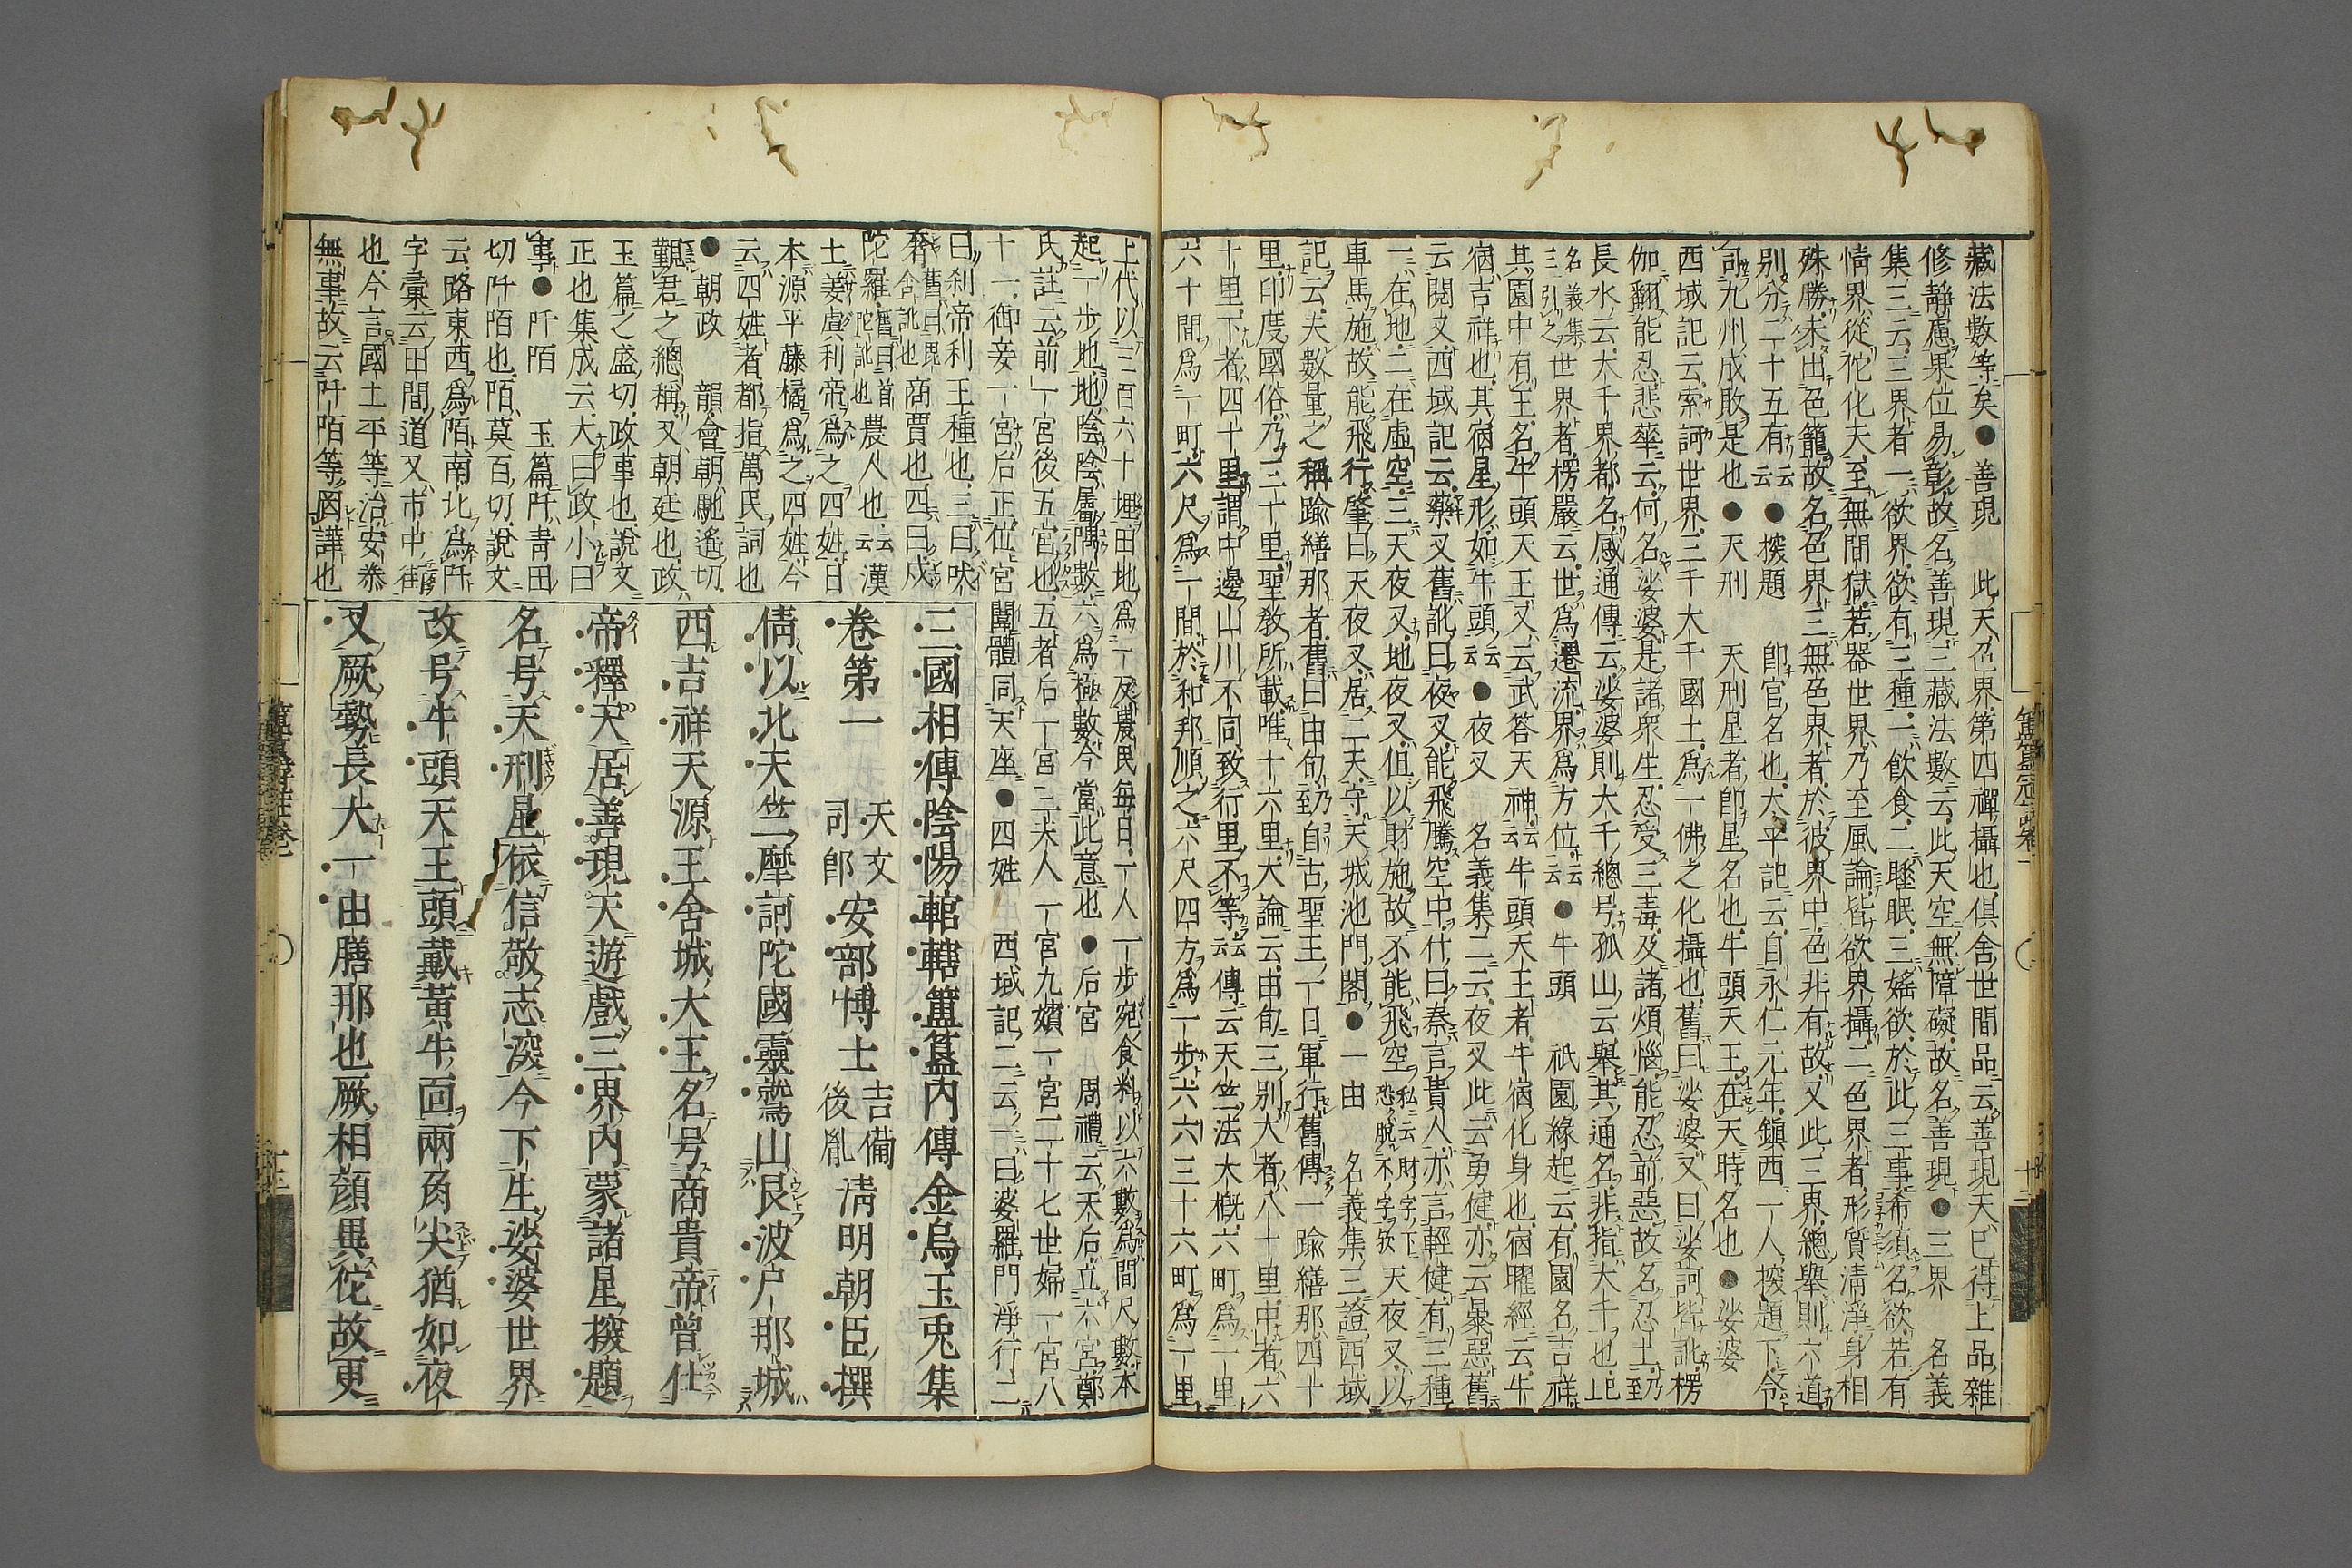 藏法數等矣●善現 此天色界第四禪攝也倶舍世間品云善現天已得上品雜
修靜慮果位易彰故名善現三藏法數云此天空無障礙故名善現●三界 名義
集三云三界者一欲界欲有三種一飲食二睡眠三婬欲於此三事希須名欲若有
情界從佗化天至無間獄若器世界乃至風論皆欲界攝二色界者形質清淨身相
殊勝未出色籠故名色界三無色界者於彼界中色非有故又此三界總擧則六道
別分二十五有云云●擬題 卽官名也太平記云自永仁元年鎭西一人擬題下令
司九州成敗是也●天刑 天刑星者卽星名也牛頭天王在天時名也●娑婆
西域記云索訶世界三千大千國土爲一佛之化攝也舊曰娑婆又曰娑訶皆訛楞
伽翻能忍悲華云何名娑婆是諸衆生忍受三毒及諸煩惱能忍前惡故名忍土乃至
長水云大千界都名感通傳云娑婆則大千總号孤山云擧其通名非指大千也已上
名義集三引之世界者楞嚴云世爲遷流界爲方位云云●牛頭 祇園緣起云有園名吉祥
其園中有王名牛頭天王又云武答天神云云牛頭天王者牛宿化身也宿曜經云牛
宿吉祥也其宿星形如牛頭云云●夜叉 名義集二云夜叉此云勇健亦云暴惡舊
云閱叉西域記云藥叉舊訛曰夜叉能飛騰空中什曰秦言貴人亦言輕健有三種
一在地二在虛空三天夜叉地夜叉但以財施故不能飛空私云財字ノ下恐クハ脫不字歟天夜叉以
車馬施故能飛行肇曰天夜叉居二天守天城池門閣●一由 名義集三證西域
記云夫數量之稱踰繕那者舊曰由旬乃至自古聖王一日軍行舊傳一踰繕那四十
里印度國俗乃三十里聖敎所載唯十六里大論云由旬三別大者八十里中者六
十里下者四十里謂中邊山川不同致行里不等云云傳云天竺法大槪六町爲一里
六十間爲一町六尺爲一間於和邦順之六尺四方爲一步六六三十六町爲一里
上代以三百六十埋田地爲一反農民每日一人一步宛食料以六數爲間尺數本
起一步地地陰陰屬隅數六爲極數今當此意也●后宮 周禮云天后立六宮鄭
氏註云前一宮後五宮也五者后一宮三夫人一宮九嬪一宮二十七世婦一宮八
十一御妾一宮后正位宮闈體同天座●四姓 西域記二云一曰婆羅門淨行二
曰刹帝利王種也三曰吠
奢舊曰毘舍訛也商賈也四曰戍
陀羅舊曰首陀訛也農人也云云漢
土姜虞利帝爲之四姓日
本源平藤橘爲之四姓今
云四姓者都指萬民詞也
●朝政 韻會朝馳遙切
覲君之總稱又朝廷也政
玉篇之盛切政事也說文
正也集成云大曰政小曰
事●阡陌 玉篇阡靑田
切阡陌也陌莫百切說文
云路東西爲陌南北爲阡
字彙云田間道又市中街
也今言國土平等治安恭
無事故云阡陌等図譁也
三國相傳陰陽輨轄簠簋內傳金烏玉兎集
卷第一 天文司郎安部博士吉備後胤淸明朝臣撰
倩以北天竺摩訶陀國靈鷲山艮波尸那城
西吉祥天源王舍城大王名号商貴帝曾仕
帝釋天居善現天遊戲三界內蒙諸星擬題
名号天刑星依信敬志深今下生娑婆世界
改号牛頭天王頭戴黃牛面兩角尖猶如夜
叉厥勢長大一由膳那也厥相顔異佗故更